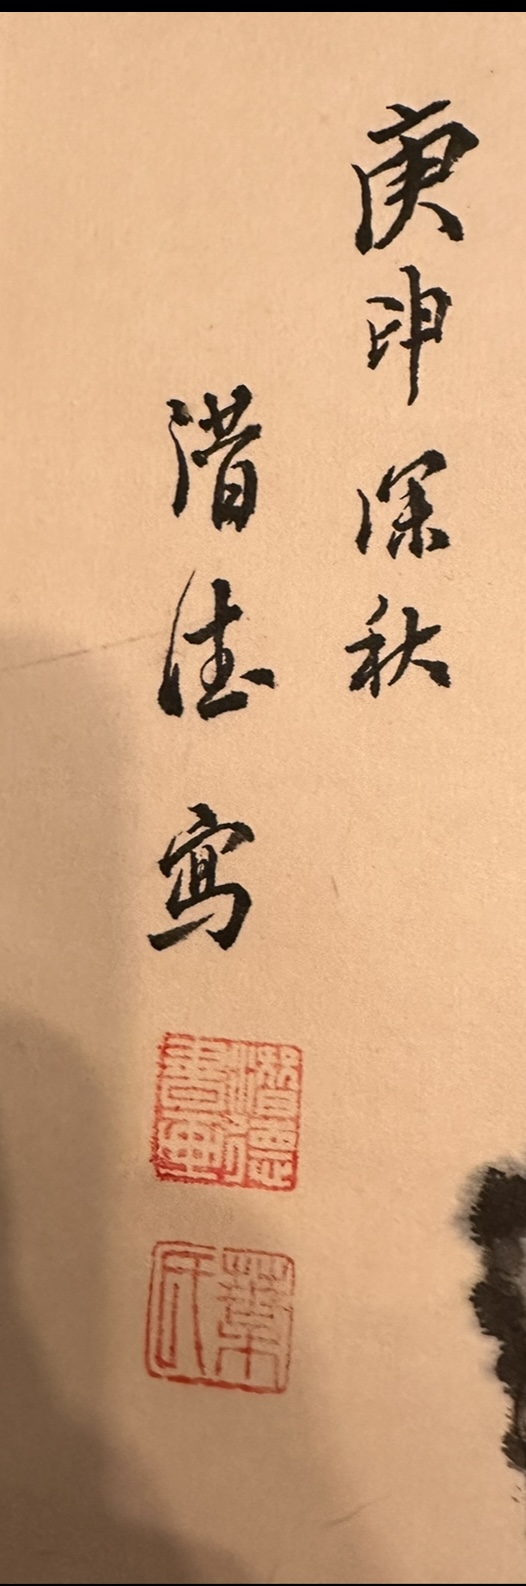 庚申深秋
潜德寫
潛德
書畫
葉氏